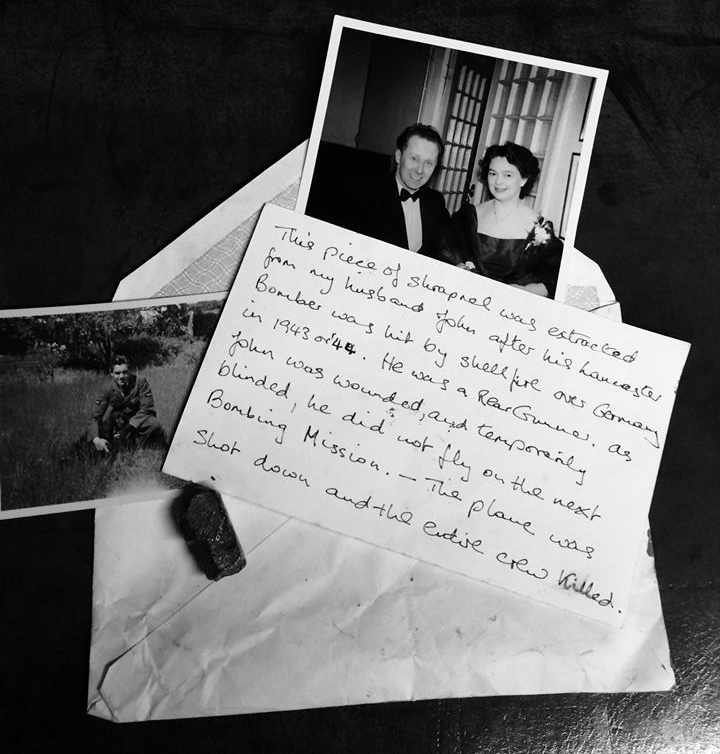 This piece of Shrapnel was extracted
from my husband John after his Lancaster
Bomber was hit by shellfire over Germany
in 1943 or '44. He was a Rear Gunner. as
John was wounded, and temporarily
blinded, he did not fly on the next
Bombing Mission. — The plane was
Shot down and the entire crew Killed.